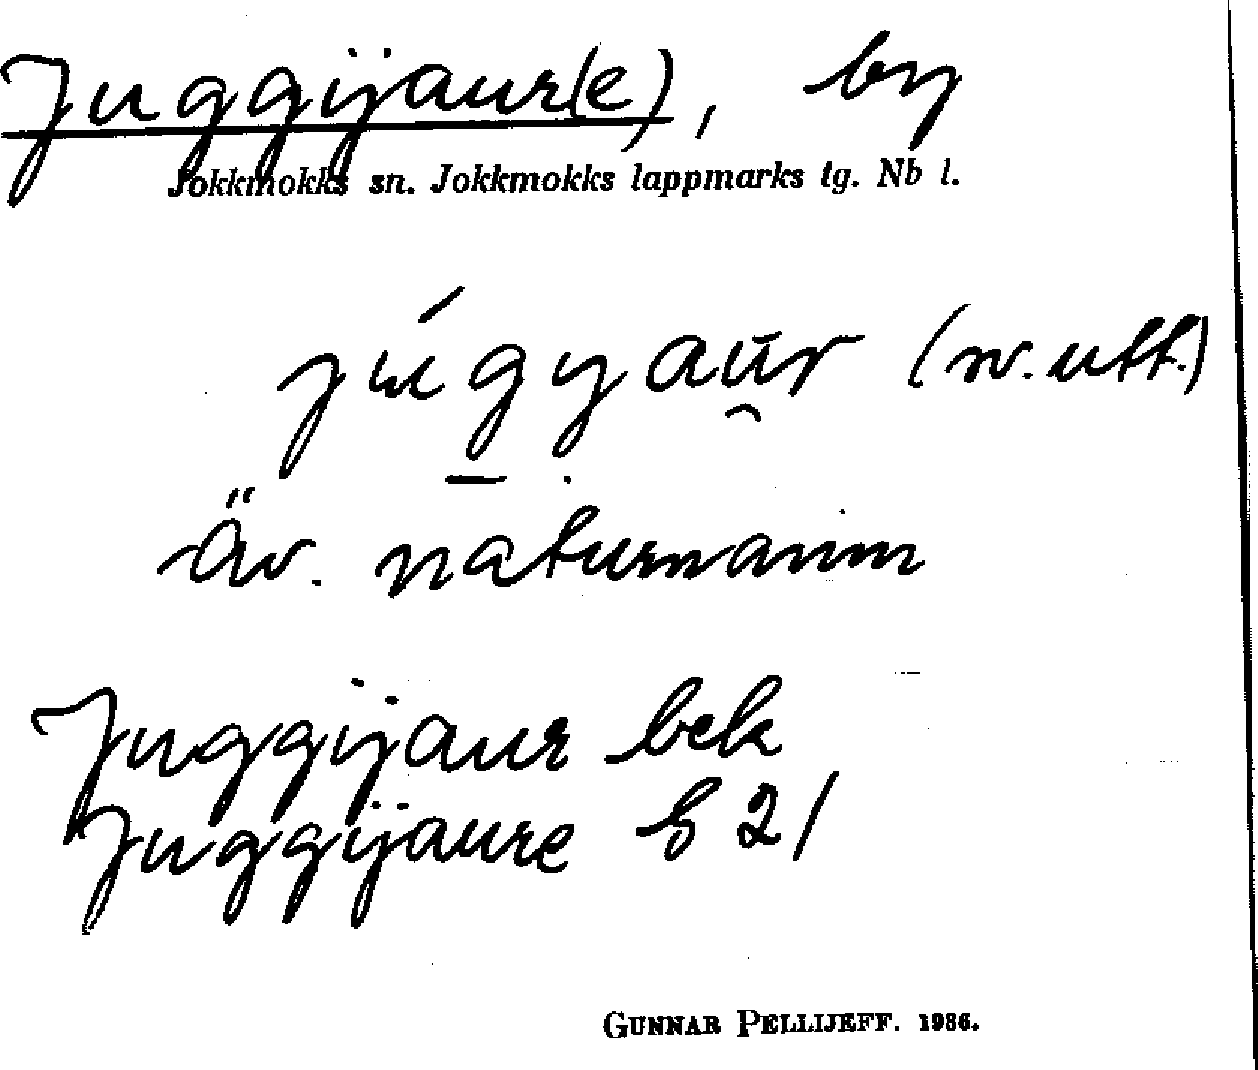 Juggijaur(e), by
Jokkmokks sn. Jokkmokks lappmarks tg. Nb l.
(sv. utt.)
Äv. naturnamn
Juggijaur bek
Juggijaure 821
GUNNAR PELLIJEFF. 1986.